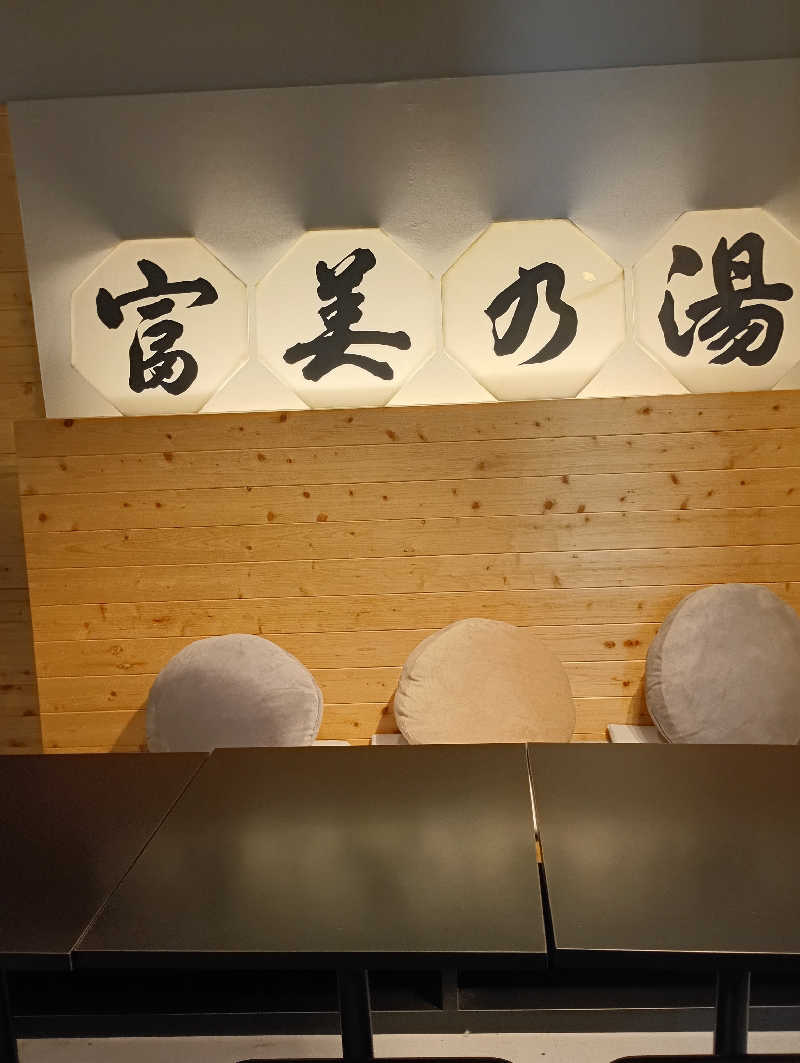 富美乃湯